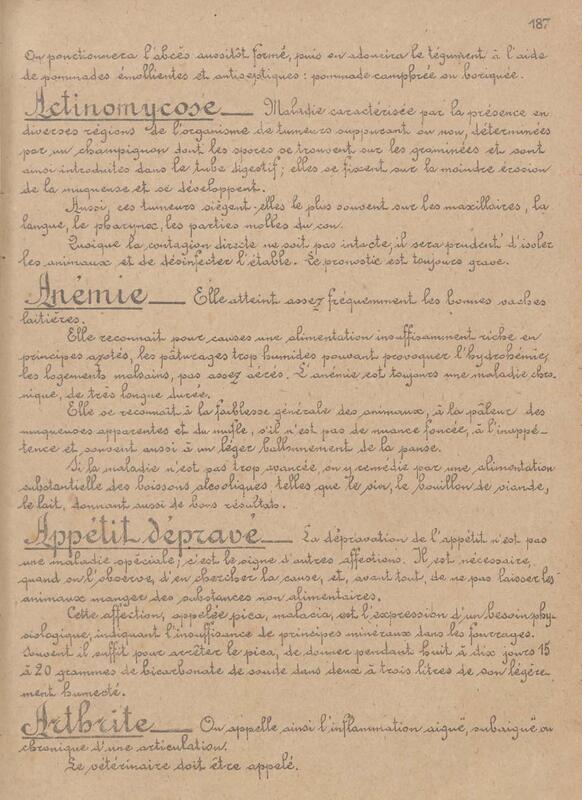 187
On ponctionnera l'abcès aussitôt formé, puis on adoucira le tégument à l'aide
de pommades émollientes et antiseptiques : pommade camphrée ou boriquée.
Actinomycose — Maladie caractérisée par la présence en
diverses régions de l'organisme de tumeurs suppurant ou non, déterminées
par un champignon dont les spores se trouvent sur les graminées et sont
ainsi introduites dans le tube digestif ; elles se fixent sur la moindre érosion
de la muqueuse et se développent.
Aussi, ces tumeurs siègent-elles le plus souvent sur les maxillaires, la
langue, le pharynx, les parties molles du cou.
Quoique la contagion directe ne soit pas intacte, il sera prudent d'isoler
les animaux et de désinfecter l'étable. Le pronostic est toujours grave.
Anémie — Elle atteint assez fréquemment les bonnes vaches
laitières.
Elle reconnaît pour causes une alimentation insuffisamment riche en
principes azotés, les pâturages trop humides pouvant provoquer l'hydrohémie,
les logements malsains, pas assez aérés. L'anémie est toujours une maladie chro-
nique, de très longue durée.
Elle se reconnaît à la faiblesse générale des animaux, à la pâleur des
muqueuses apparentes et du mufle, s'il n'est pas de nuance foncée, à l'inappé-
tence et souvent aussi à un léger ballonnement de la panse.
Si la maladie n'est pas trop avancée, on y remédie par une alimentation
substantielle des boissons alcooliques telles que le vin, le bouillon de viande,
le lait, donnant aussi de bons résultats.
Appétit dépravé — La dépravation de l'appétit n'est pas
une maladie spéciale ; c'est le signe d'autres affections. Il est nécessaire,
quand on l'observe, d'en chercher la cause et, avant tout, de ne pas laisser les
animaux manger des substances non alimentaires.
Cette affection, appelée pica, malacia, est l'expression d'un besoin phy-
siologique, indiquant l'insuffisance de principes minéraux dans les fourrages.
Souvent il suffit pour arrêter le pica, de donner pendant huit à dix jours 15
à 20 grammes de bicarbonate de soude dans deux à trois litres de son légère-
ment humecté.
Arthrite — On appelle ainsi l'inflammation aiguë, subaiguë ou
chronique d'une articulation.
Le vétérinaire doit être appelé.